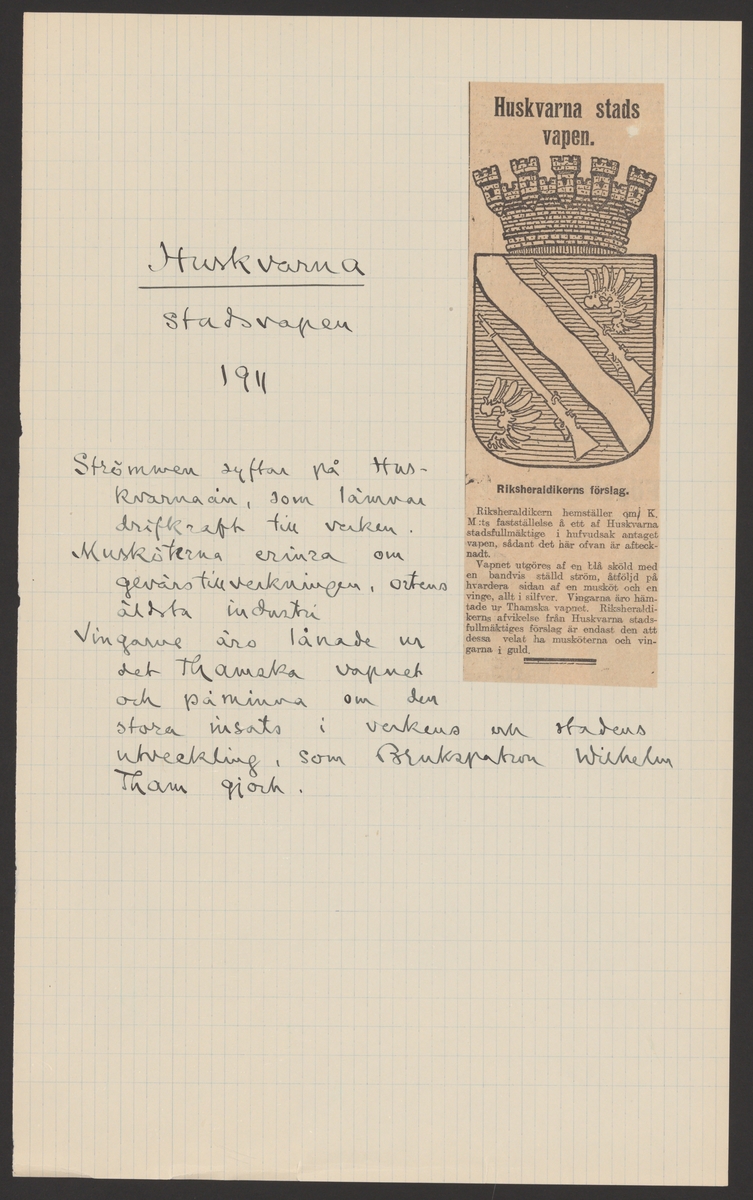 Huskvarna
stadsvapen
1911
Strömmen syftar på Hus-
kvarnaån, som lämnar
drifkraft till verken.
Musköterna erinra om
gevärstillverkningen, ortens
äldsta industri
Vingarne äro lånade ur
det Thamska vapnet
och påminna om den
stora insats i verkens och stadens
utveckling, som Brukspatron Wilhelm
Tham gjort.
Huskvarna stads
vapen.
Riksheraldikerns förslag.
Riksheraldikern hemställer om K.
M:ts fastställelse å ett af Huskvarna
stadsfullmäktige i hufvudsak antaget
vapen, sådant det här ofvan är afteck-
nadt.
Vapnet utgöres af en blå sköld med
en bandvis ställd ström, åtföljd på
hvardera sidan af en musköt och en
vinge, allt i silfver. Vingarna äro häm-
tade ur Thamska vapnet. Riksheraldi-
kerns afvikelse från Huskvarna stads-
fullmäktiges förslag är endast den att
dessa velat ha musköterna och vin-
garna i guld.